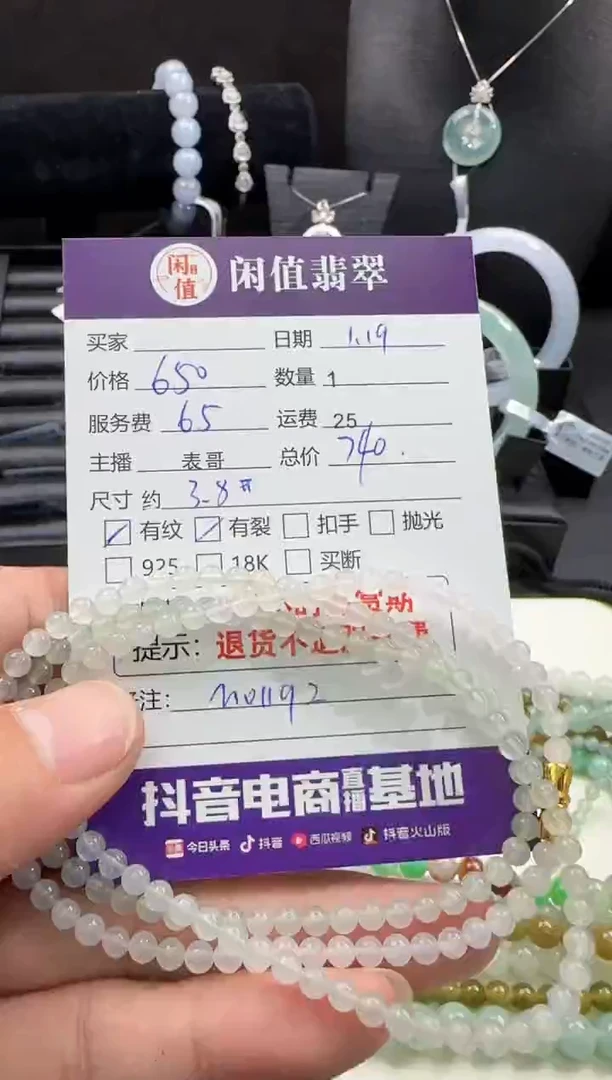 闲值 闲值翡翠
买家 日期 1.19
价格 650 数量 1
服务费 65 运费 25
主播 表哥 总价 740.
尺寸 约 3-8#
有纹 有裂 扣手 抛光
925 18K 买断
提示：退货不退
注：
抖音电商直播基地
今日头条 抖音 西瓜视频 抖音火山版